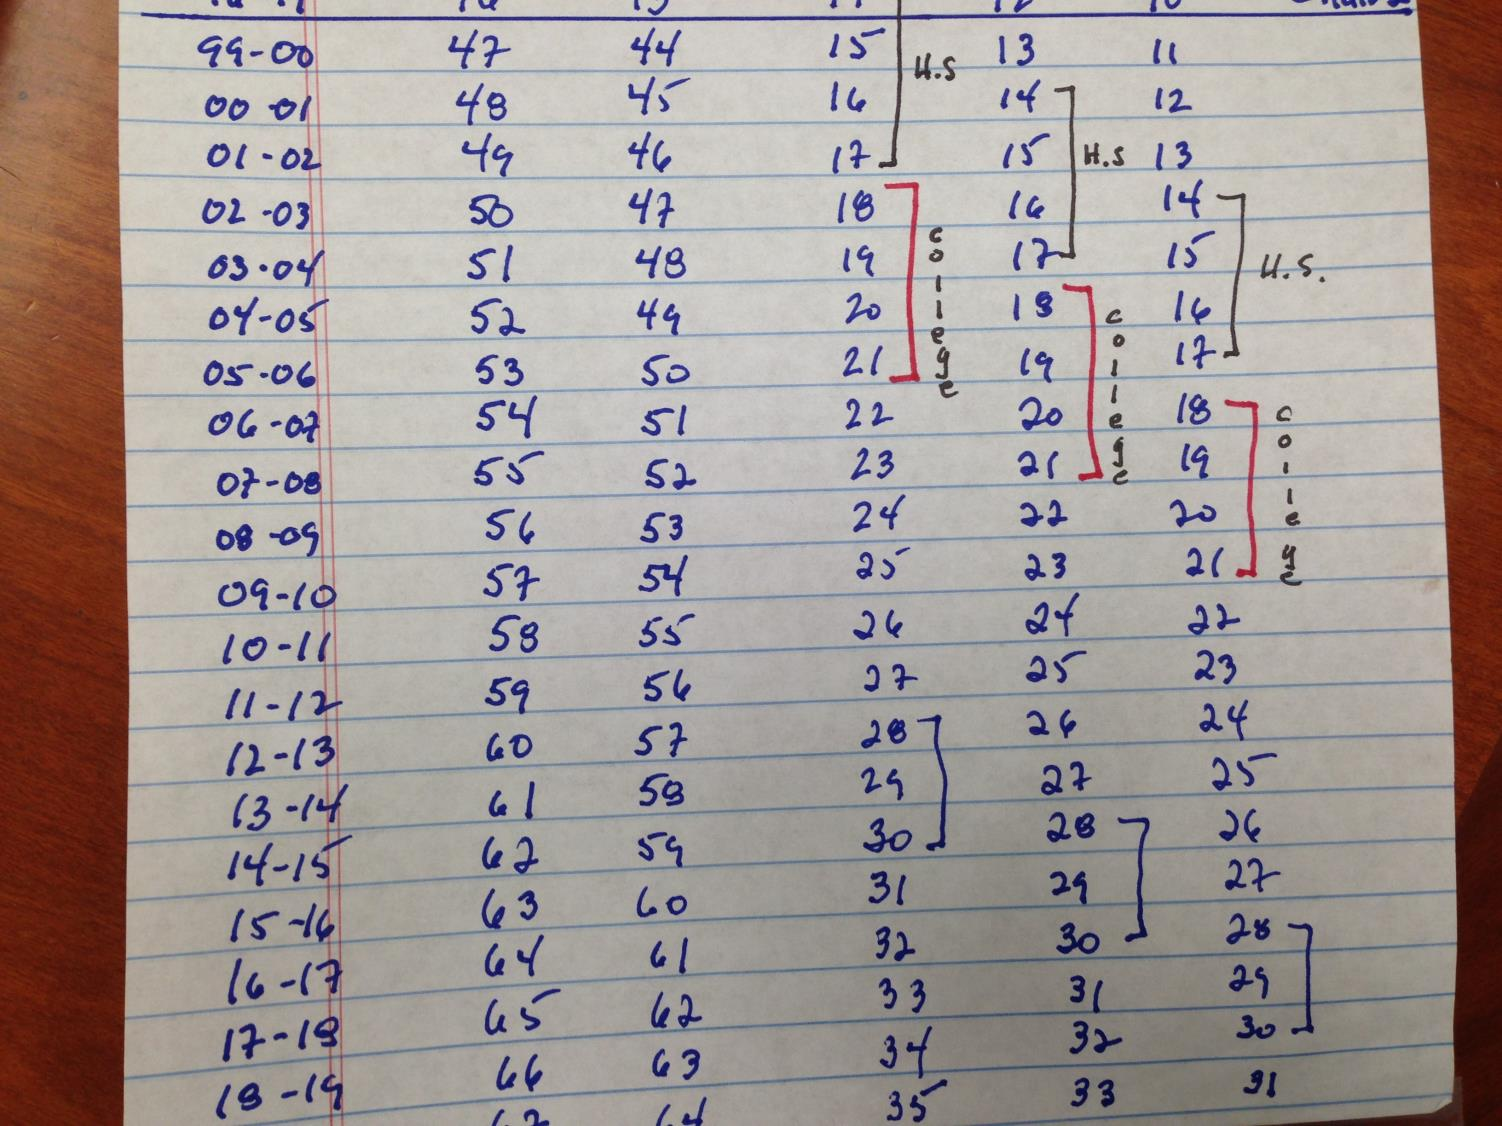 99-00 47 44 15 H.S 13 11
00-01 48 45 16 14 12
01-02 49 46 17 15 H.S 13
02-03 50 47 18 college 16 14
03-04 51 48 19 17 15 H.S.
04-05 52 49 20 18 college 16
05-06 53 50 21 19 17
06-07 54 51 22 20 18 college
07-08 55 52 23 21 19
08-09 56 53 24 22 20
09-10 57 54 25 23 21
10-11 58 55 26 24 22
11-12 59 56 27 25 23
12-13 60 57 28 26 24
13-14 61 58 29 27 25
14-15 62 59 30 28 26
15-16 63 60 31 29 27
16-17 64 61 32 30 28
17-18 65 62 33 31 29
18-19 66 63 34 32 30
35 33 31